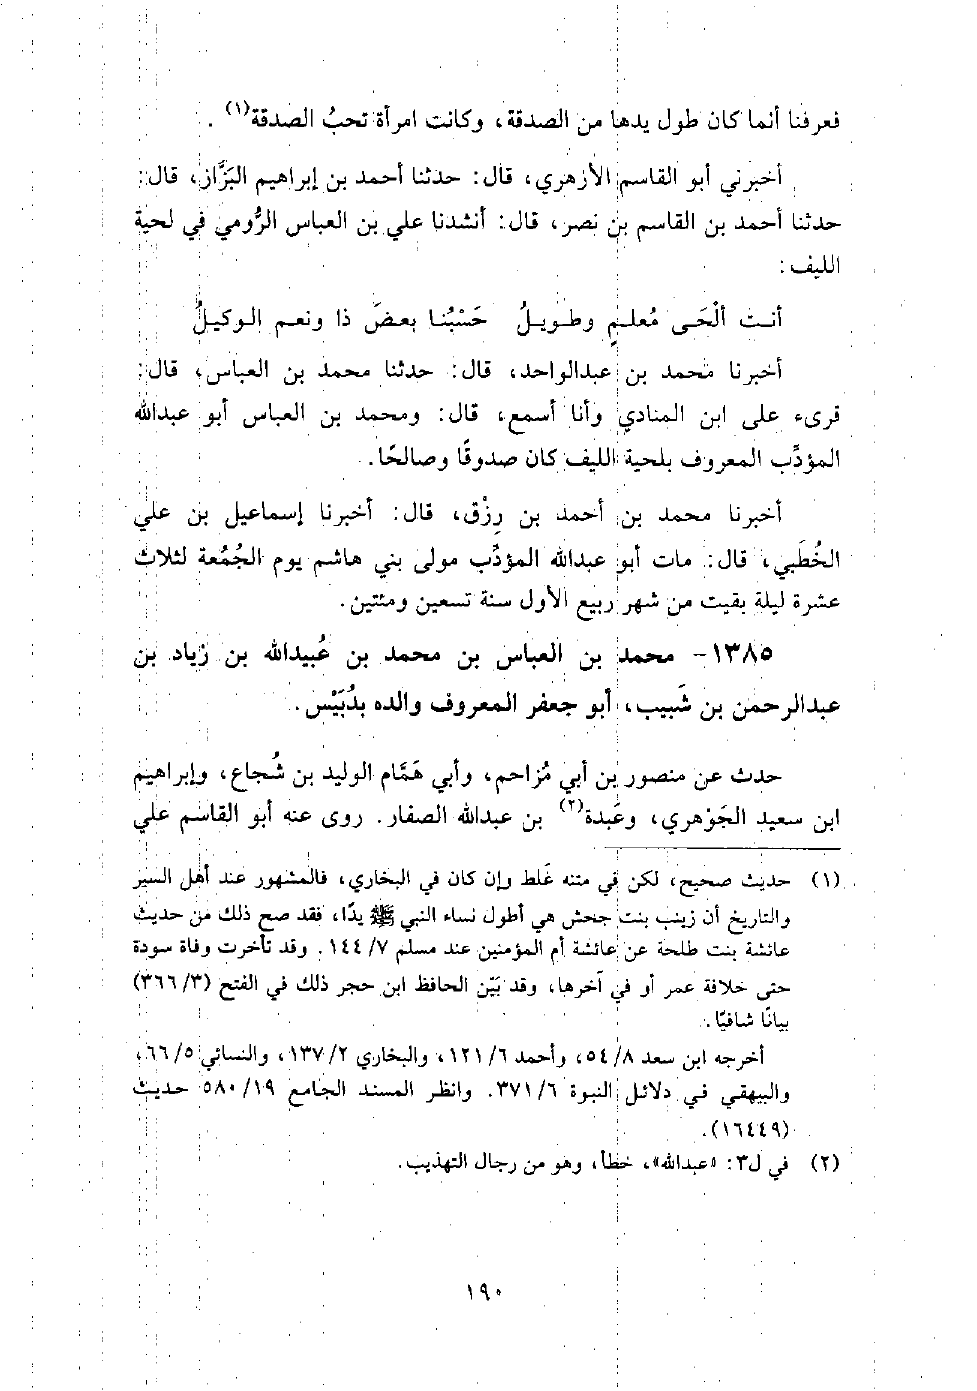 فعرفنا أنما كان طول يدها من الصدقة، وكانت امرأة تحبُ الصدقة(١) .
أخبرني أبو القاسم الأزهري، قال: حدثنا أحمد بن إبراهيم البَزَّاز، قال:
حدثنا أحمد بن القاسم بن نصر، قال: أنشدنا علي بن العباس الرُّومي في لحية
الليف:
أنت ألْحَى مُعلمٍ وطويلُ حَسْبُنا بعضَ ذا ونعم الوكيلُ
أخبرنا محمد بن عبدالواحد، قال: حدثنا محمد بن العباس، قال:
قرىء على ابن المنادي وأنا أسمع، قال: ومحمد بن العباس أبو عبدالله
المؤدِّب المعروف بلحية الليف كان صدوقًا وصالحًا.
أخبرنا محمد بن أحمد بن رِزْق، قال: أخبرنا إسماعيل بن علي
الخُطَبي، قال: مات أبو عبدالله المؤدِّب مولى بني هاشم يوم الجُمُعة لثلاث
عشرة ليلة بقيت من شهر ربيع الأول سنة تسعين ومئتين.
١٣٨٥- محمد بن العباس بن محمد بن عُبيدالله بن زياد بن
عبدالرحمن بن شَبيب، أبو جعفر المعروف والده بدُبَيْس.
حدث عن منصور بن أبي مُزاحم، وأبي هَمَّام الوليد بن شُجاع، وإبراهيم
ابن سعيد الجَوْهري، وعَبدة(٢) بن عبدالله الصفار. روى عنه أبو القاسم علي
(١) حديث صحيح، لكن في متنه غَلط وإن كان في البخاري، فالمشهور عند أهل السير
والتاريخ أن زينب بنت جحش هي أطول نساء النبي ﷺ يدًا، فقد صح ذلك من حديث
عائشة بنت طلحة عن عائشة أم المؤمنين عند مسلم ٧/ ١٤٤. وقد تأخرت وفاة سودة
حتى خلافة عمر أو في آخرها، وقد بَيّن الحافظ ابن حجر ذلك في الفتح (٣/ ٣٦٦)
بيانًا شافيًا.
أخرجه ابن سعد ٨/ ٥٤، وأحمد ٦/ ١٢١، والبخاري ٢/ ١٣٧، والنسائي ٥/ ٦٦،
والبيهقي في دلائل النبوة ٦/ ٣٧١. وانظر المسند الجامع ١٩/ ٥٨٠ حديث
(١٦٤٤٩).
(٢) في ل٣: «عبدالله»، خطأ، وهو من رجال التهذيب.
١٩٠